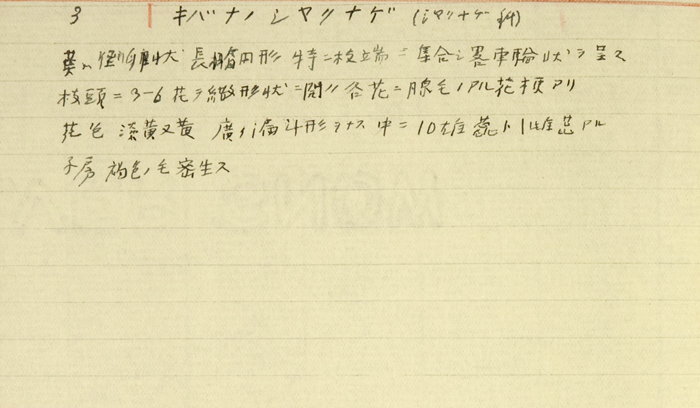 3 キバナノシヤクナゲ (シヤクナゲ科)
葉ハ倒卵状長楕円形 特ニ枝端ニ集合シ畧車輪状ヲ呈ス
枝頭ニ3-6花ヲ繖形状ニ開ク各花ニ腺毛アル花梗アリ
花色 淡黄又黄 廣イ漏斗形ヲナス 中ニ10雄蕋ト1雌蕋アル
子房 褐色ノ毛密生ス